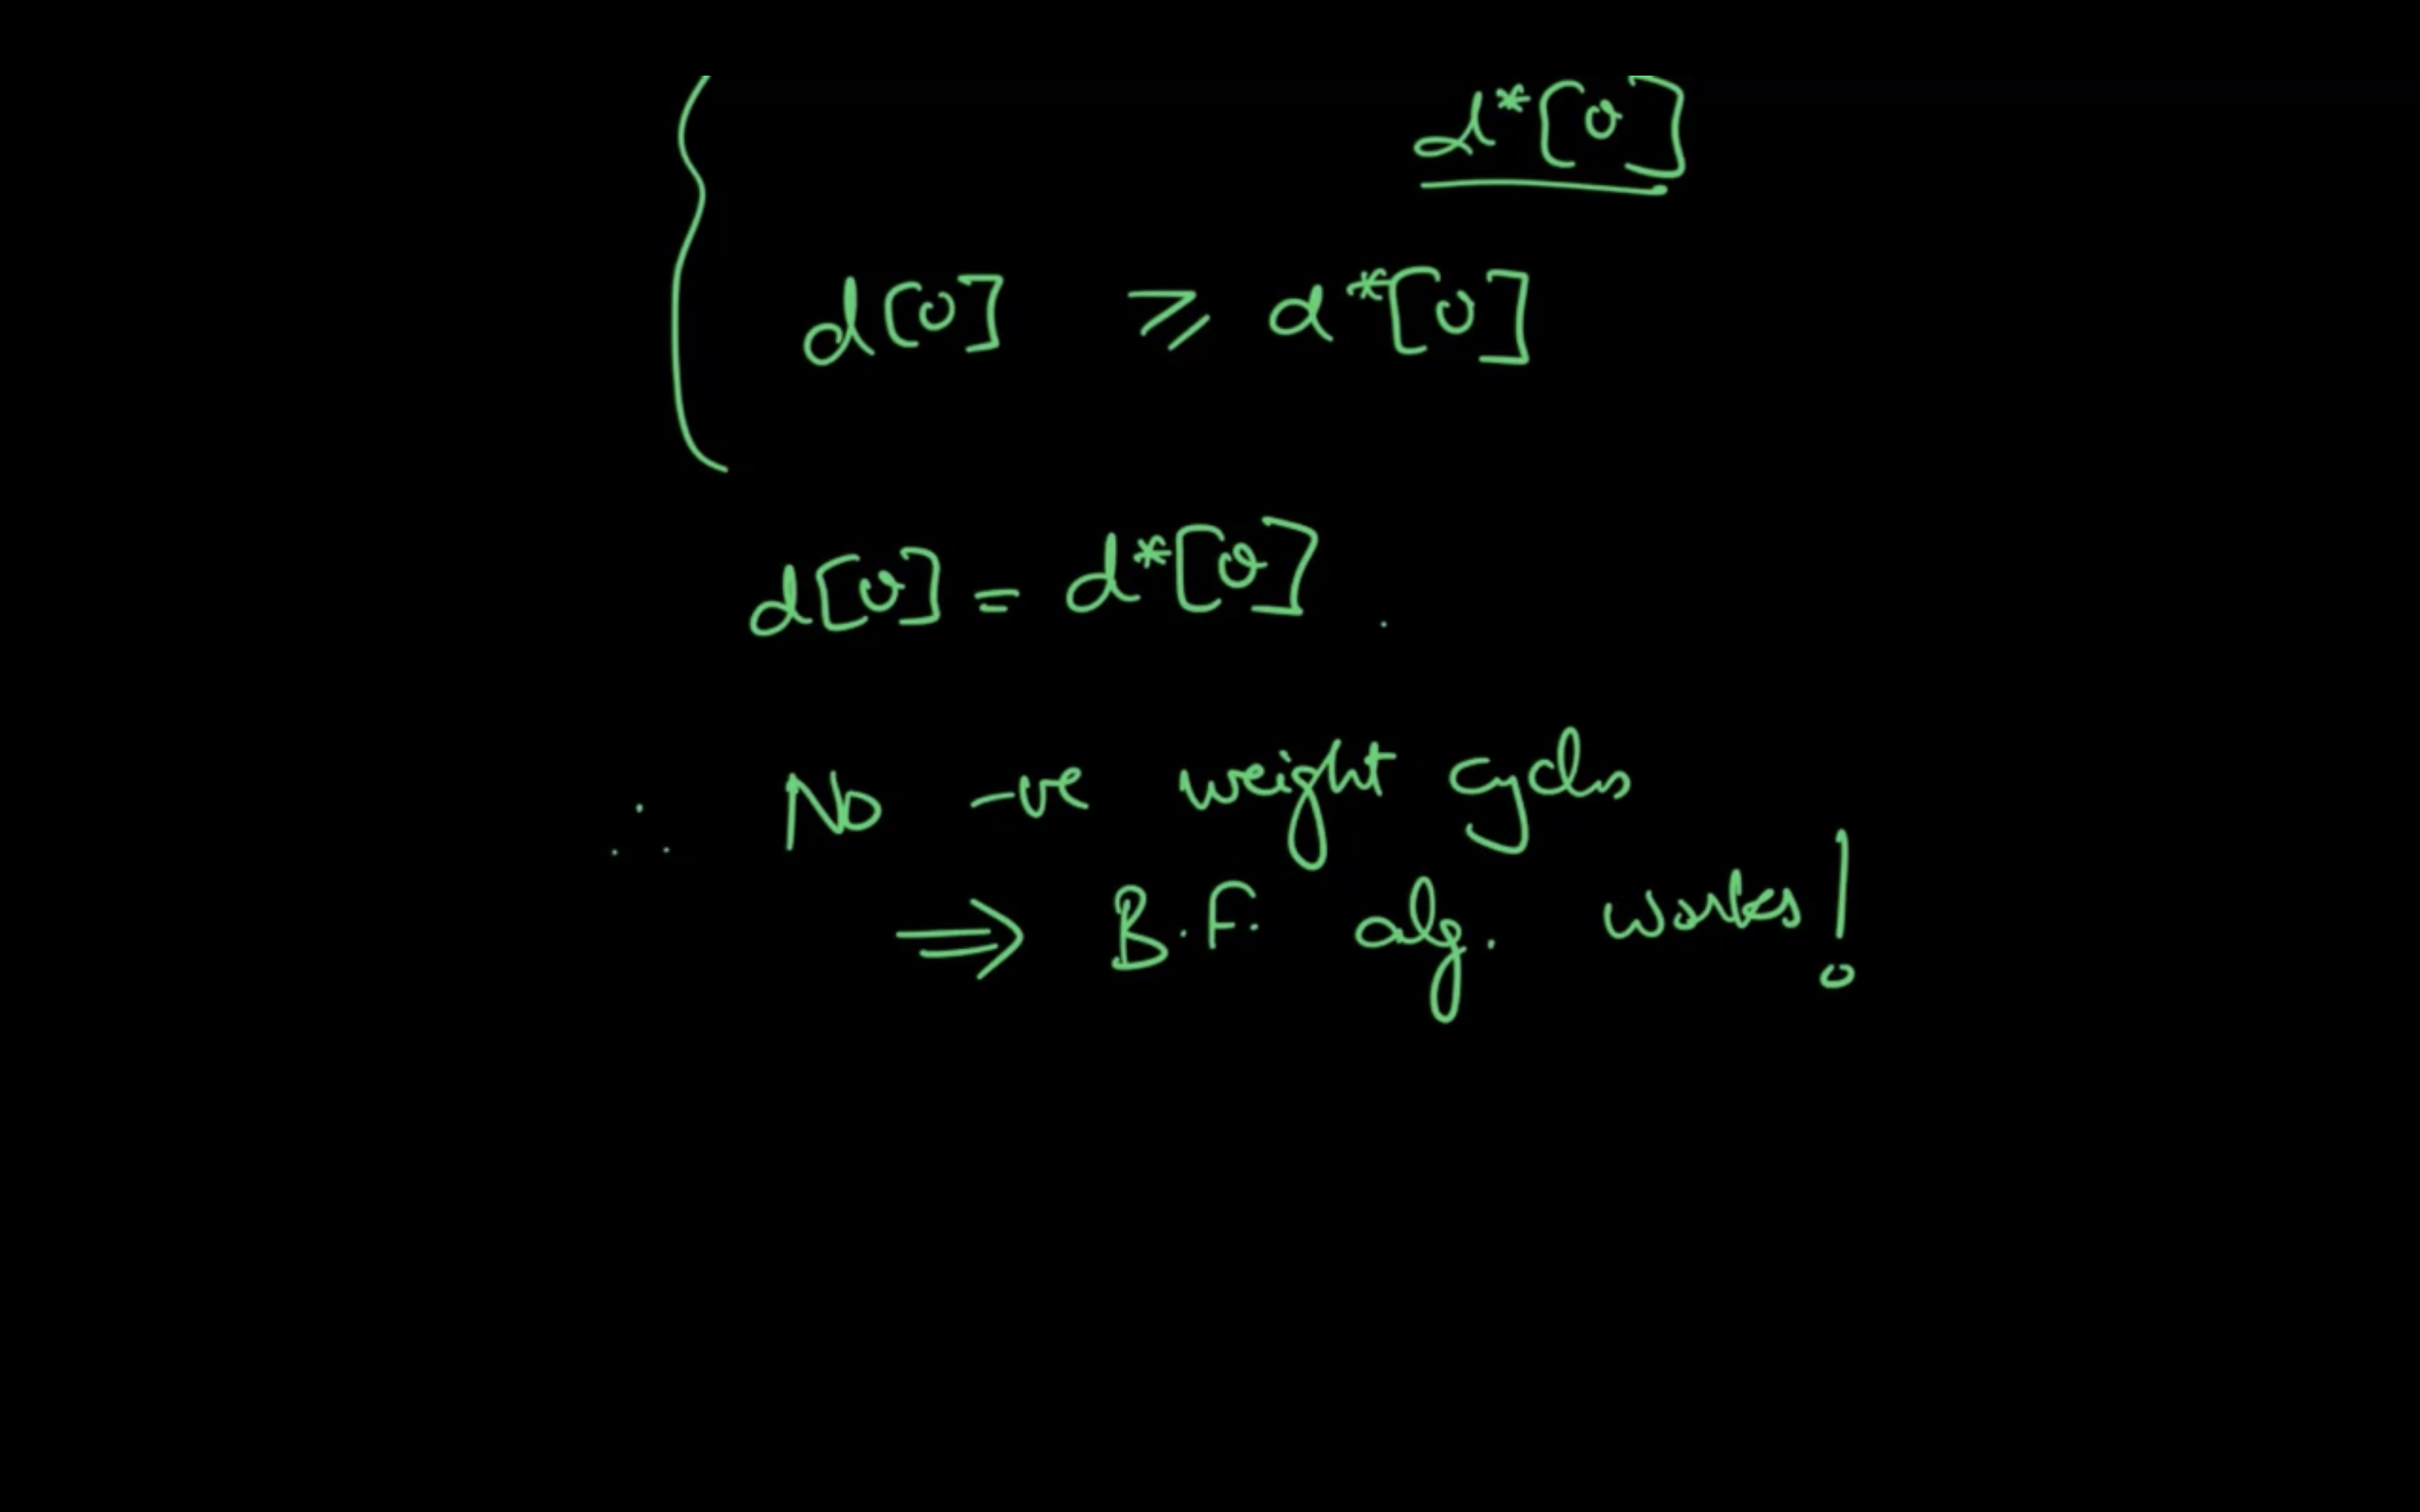 d*[v]
d[v] ≥ d*[v]
d[v] = d*[v] .
∴ No -ve weight cycles
⇒ B.F. alg. works!